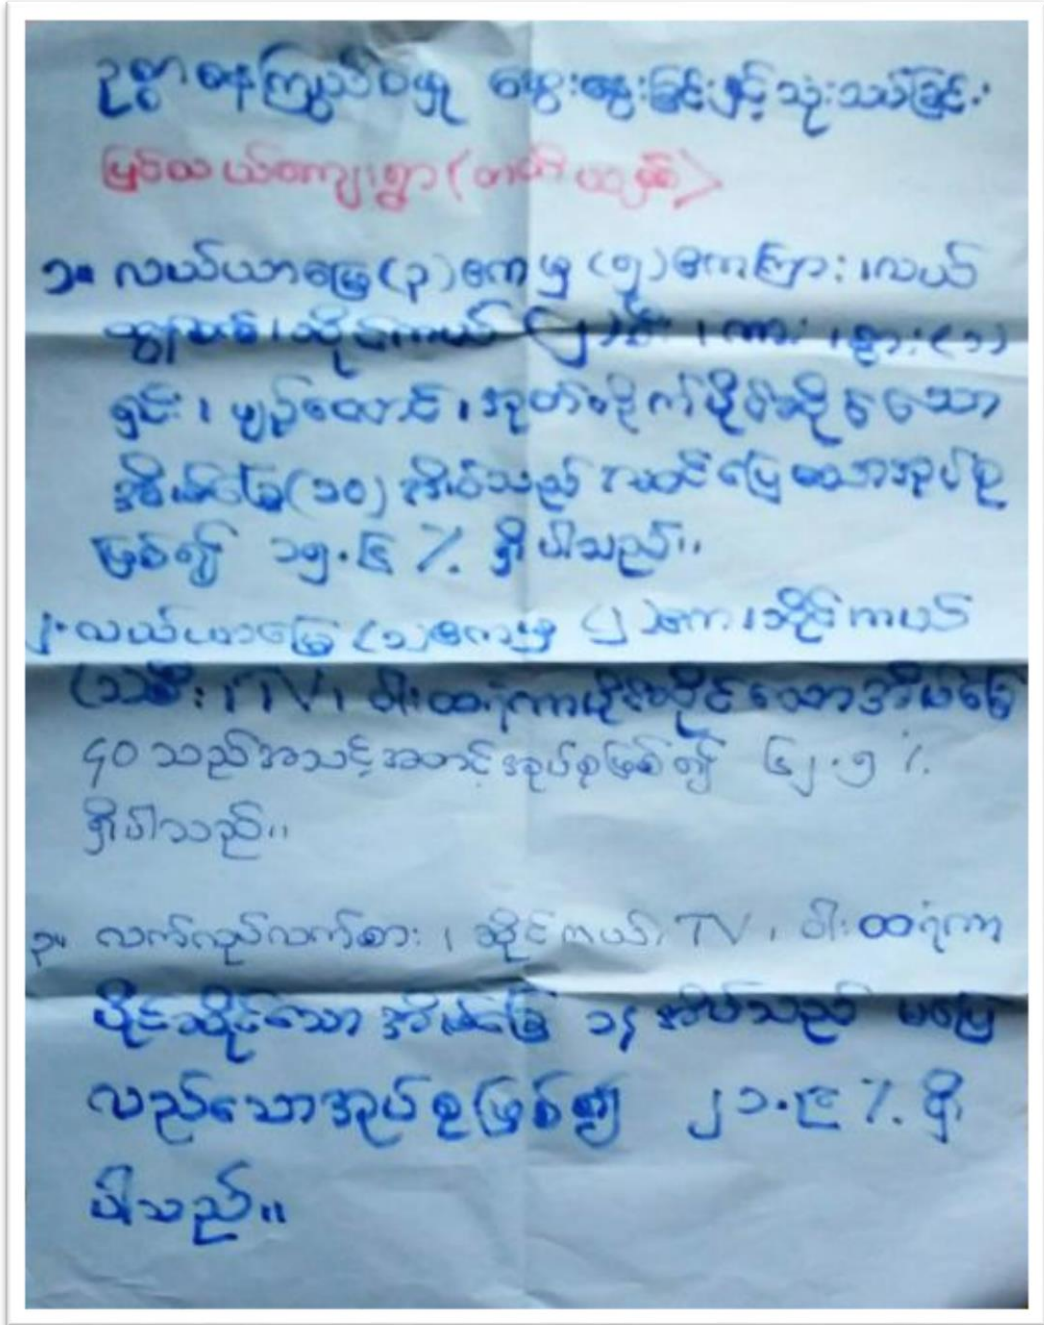 ဥစ္စာဓနကြွယ်ဝမှု ဆွေးနွေးခြင်းနှင့်သုံးသပ်ခြင်း
မြင်ယယ်ကျေးရွာ
၁။ လယ်ယာမြေ(၃)ဧကမှ (၅)ဧကကြား၊လယ်
(၁)
ရှင်း၊ မျဉ်ထောင်၊အုတ်တိုက်ပိုင်ဆိုင်သော
အိမ်ခြေ(၁၀)အိမ်သည် အဆင်ပြေသောအုပ်စု
ဖြစ်၍ ၁၅.၆ % ရှိပါသည်။
၂။ လယ်ယာမြေ (၁)ဧကမှ (၂)ဧက၊ဆိုင်ကယ်
(၁)စီး၊ TV၊ ဝါးထရံကာပိုင်ဆိုင်သောအိမ်ခြေ
၄၀သည်အသင့်အတင့်အုပ်စုဖြစ်၍ ၆၂.၅ %
ရှိပါသည်။
၃။ လက်လုပ်လက်စား၊ ဆိုင်ကယ်၊ TV၊ ဝါးထရံကာ
ပိုင်ဆိုင်သော အိမ်ခြေ ၁၄ အိမ်သည် မပြေ
လည်သောအုပ်စုဖြစ်၍ ၂၁.၉ % ရှိ
ပါသည်။